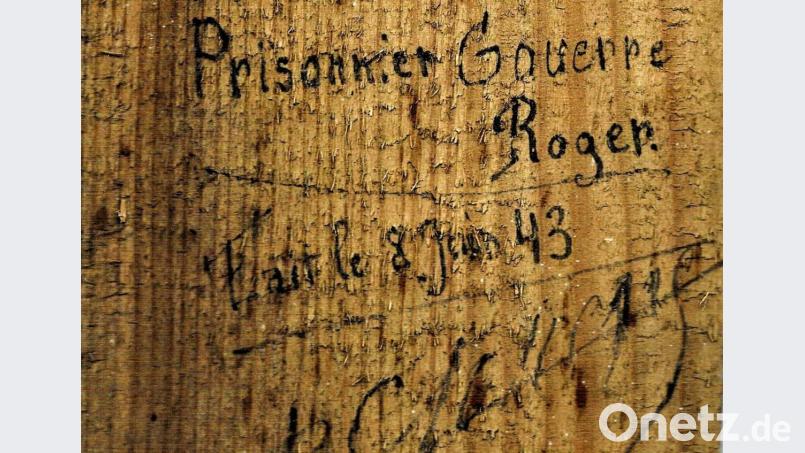 Prisonnier Gouerre
Roger.
Fait le 8 Juin 43
Onetz.de